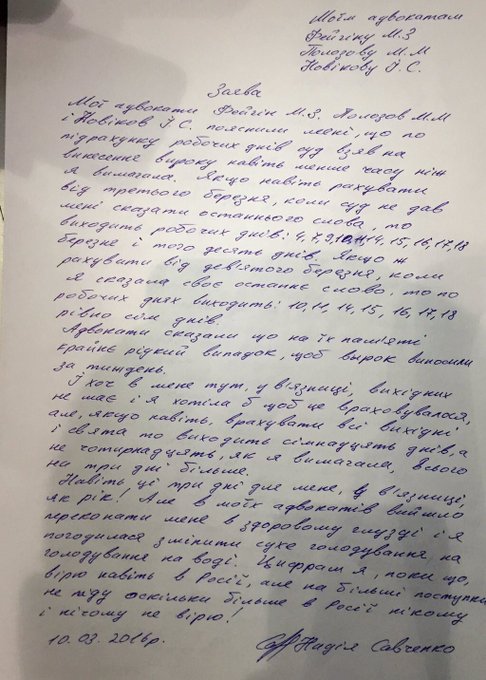 Моїм адвокатам
Фейгіну М.З
Полозову М.М
Новікову І.С.
Заява
Мої адвокати Фейгін М.З. Полозов М.М
і Новіков І.С. пояснили мені, що по
підрахунку робочих днів суд взяв на
винесення вироку навіть менше часу ніж
я вимагала. Якщо навіть рахувати
від третього березня, коли суд не дав
мені сказати останнього слова, то
виходить робочих днів: 4,7,9,10,11,14,15,16,17,18
березне і того десять днів. Якщо ж
рахувати від дев'ятого березня, коли
я сказала своє останнє слово, то по
робочих днях виходить: 10,11, 14, 15, 16, 17, 18
рівно сім днів.
Адвокати сказали що на їх памяті
крайнє рідкий випадок, щоб вырок виносили
за тиждень.
І хоч в мене тут, у в'язниці, вихідних
не має і я хотіла б щоб це враховувалося,
але, якщо навіть, врахувати всі вихідні
і свята то виходить сімнадцять днів, а
не чотирнадцять, як я вимагала, всього
на три дні більше.
Навіть ці три дні для мене, у в'язниці,
як рік! Але в моїх адвокатів вийшло
переконати мене в здоровому глузді і я
погодилася змінити сухе голодування на
голодування на воді. Цифрам я, поки що,
вірю навіть в Росії, але на більші поступки
не піду оскільки більше в Росії нікому
і нічому не вірю!
10.03.2016р. Надія Савченко